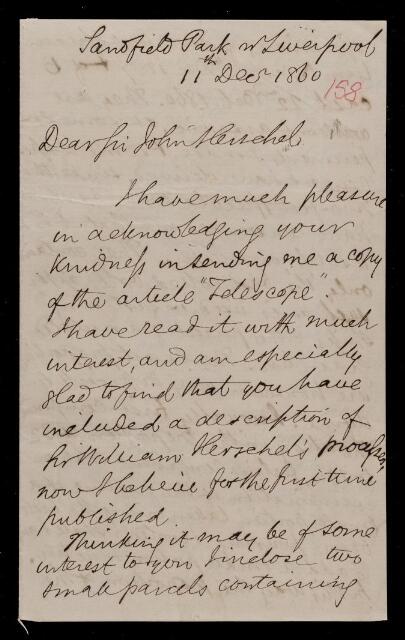 Sandfield Park nr Liverpool
11th Decr 1860
158
Dear Sir John Herschel
I have much pleasure
in acknowledging your
kindness in sending me a copy
of the article "Telescope".
I have read it with much
interest, and am especially
glad to find that you have
included a description of
Sir William Herschel's processes,
now I believe for the first time
published.
Thinking it may be of some
interest to you I inclose two
small parcels containing